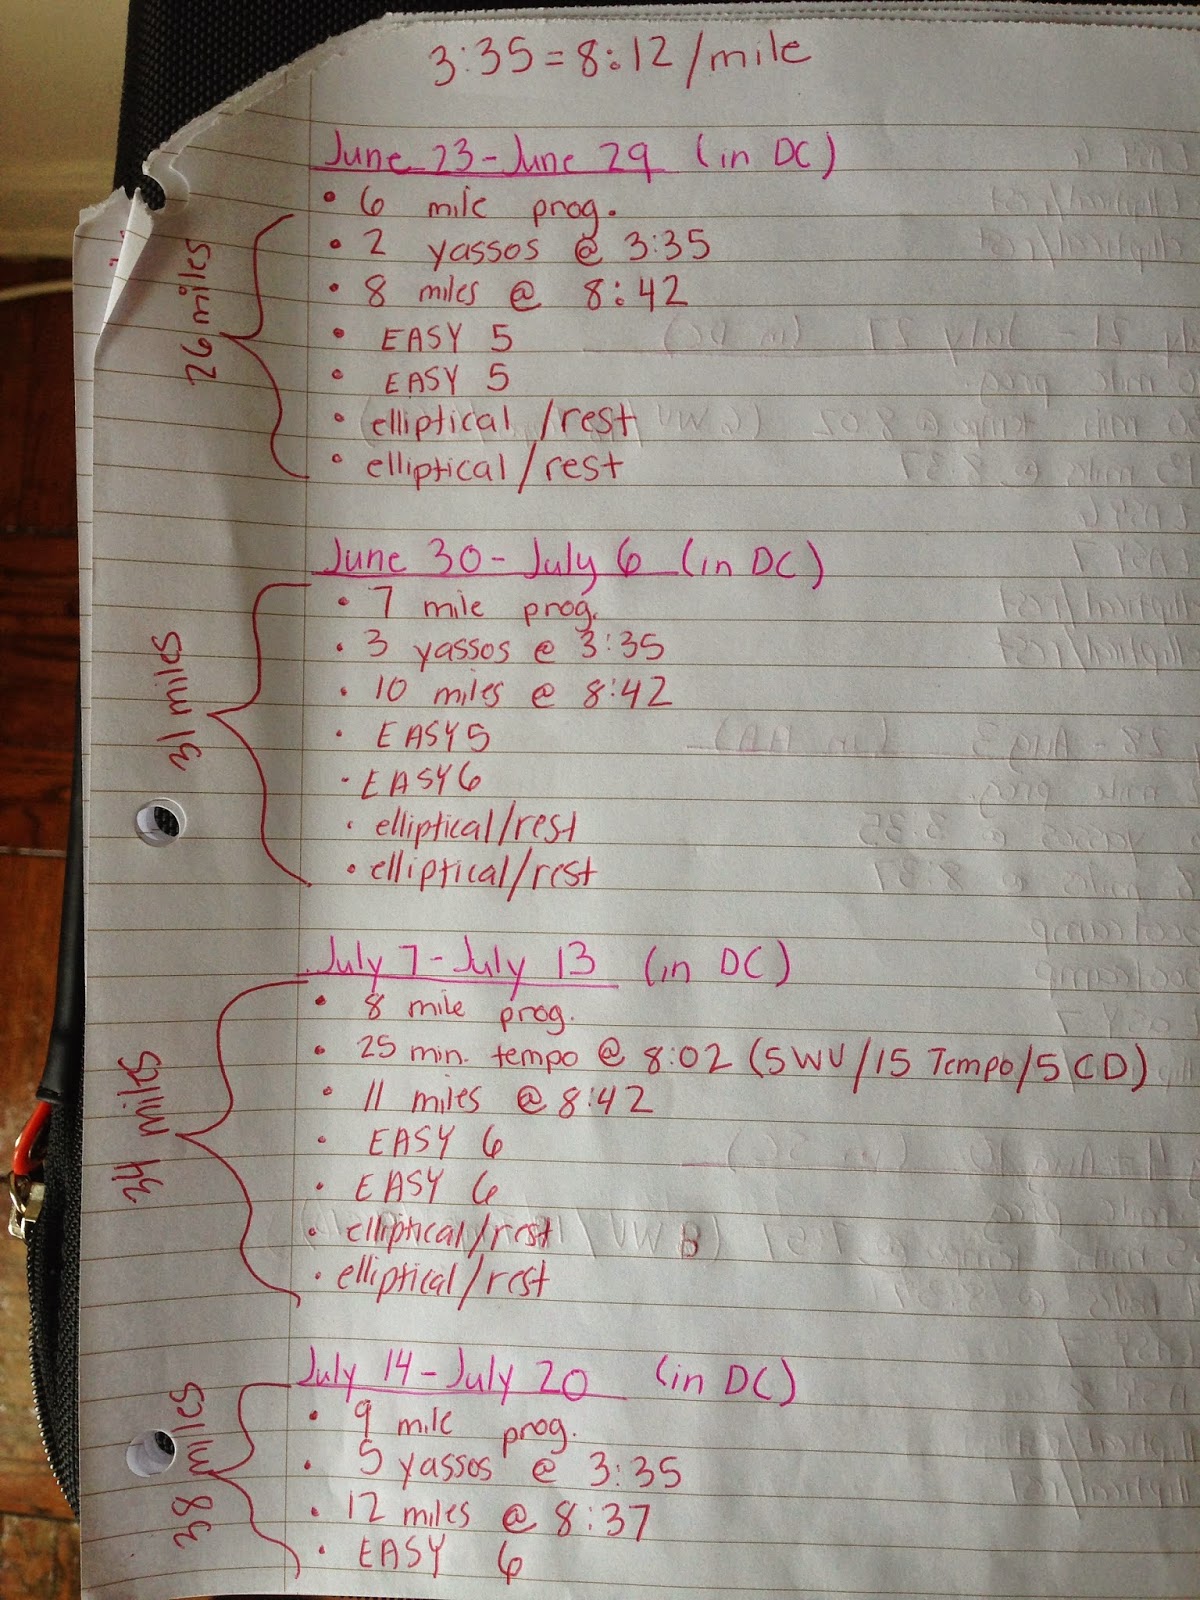 3:35 = 8:12/mile
June 23 - June 29 (in DC)
26 miles
• 6 mile prog.
• 2 yassos @ 3:35
• 8 miles @ 8:42
• EASY 5
• EASY 5
• elliptical/rest
• elliptical/rest
June 30 - July 6 (in DC)
31 miles
• 7 mile prog.
• 3 yassos @ 3:35
• 10 miles @ 8:42
• EASY 5
• EASY 6
• elliptical/rest
• elliptical/rest
July 7 - July 13 (in DC)
34 miles
• 8 mile prog.
• 25 min. tempo @ 8:02 (5 WU/15 Tempo/5 CD)
• 11 miles @ 8:42
• EASY 6
• EASY 6
• elliptical/rest
• elliptical/rest
July 14 - July 20 (in DC)
38 miles
• 9 mile prog.
• 5 yassos @ 3:35
• 12 miles @ 8:37
• EASY 6